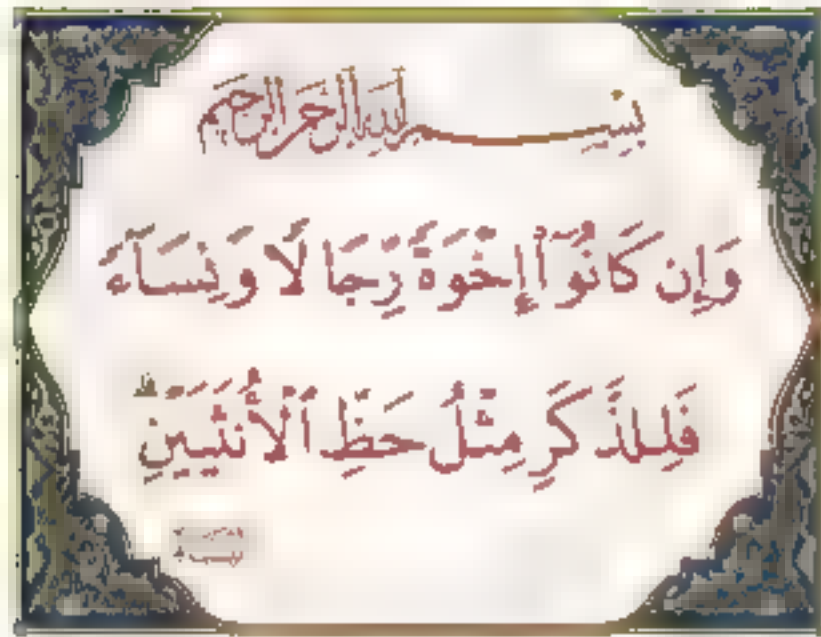 بِسْمِ اللَّهِ الرَّحْمَٰنِ الرَّحِيمِ
وَإِن كَانُوٓا۟ إِخْوَةً رِّجَالًا وَنِسَآءً
فَلِلذَّكَرِ مِثْلُ حَظِّ ٱلْأُنثَيَيْنِ ۗ